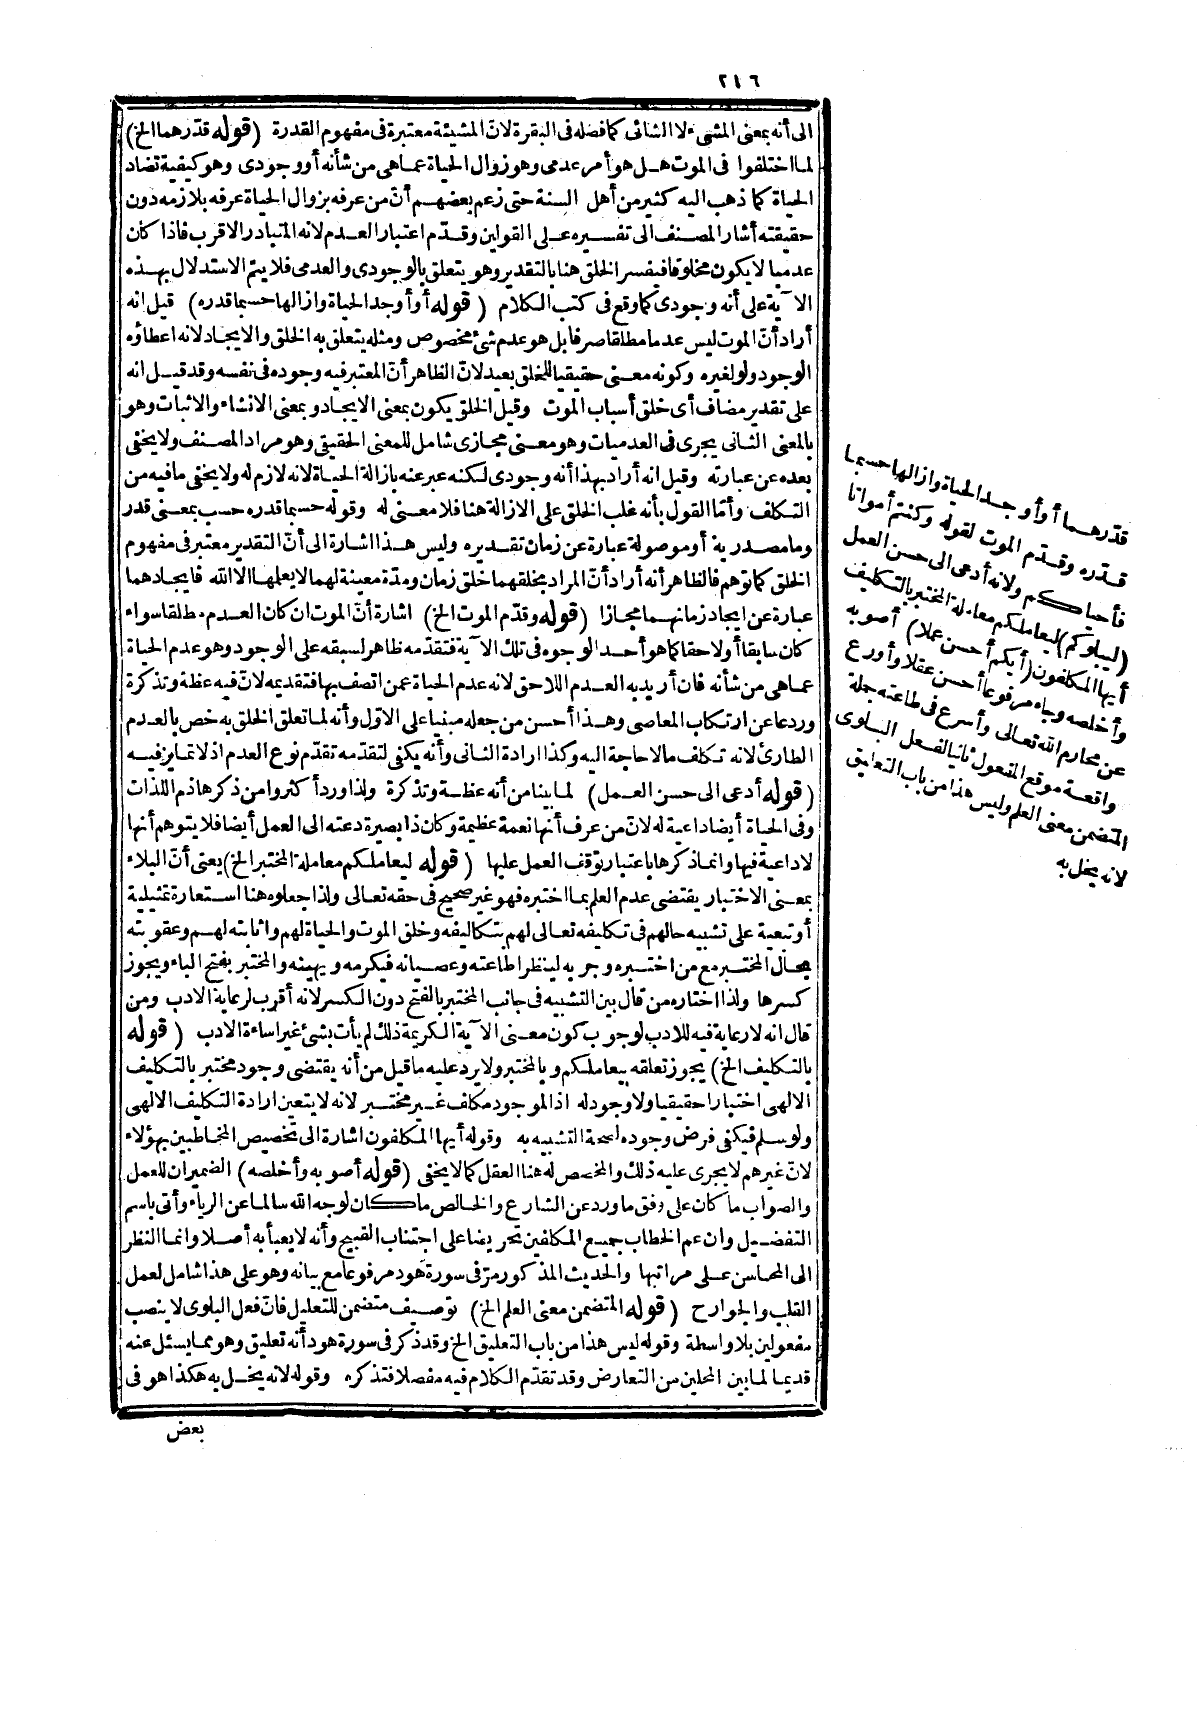 ٢١٦
الى أنه بمعنى المشيء لا الشائى كما فصله فى البقرة لانّ المشيئة معتبرة فى مفهوم القدرة (قوله قدّرهما الخ)
لما اختلفوا فى الموت هل هو أمر عدمى وهو زوال الحياة عما هى من شأنه أو وجودى وهو كيفية تضاد
الحياة كما ذهب اليه كثير من أهل السنة حتى زعم بعضهم أنّ من عرفه بزوال الحياة عرفه بلازمه دون
حقيقته أشار المصنف الى تفسيره على القولين وقدّم اعتبار العدم لانه المتبادر الاقرب فاذا كان
عدميا لا يكون مخلوقا فيفسر الخلق هنا بالتقدير وهو يتعلق بالوجودى والعدمى فلا يتم الاستدلال بهذه
الآية على أنه وجودى كما وقع فى كتب الكلام (قوله أو أوجد الحياة وازالها حسبما قدره) قيل انه
أراد أنّ الموت ليس عدما مطلقا صرفا بل هو عدم شئ مخصوص ومثله يتعلق به الخلق والايجاد لانه اعطاؤه
الوجود ولو لغيره وكونه معنى حقيقيا للخلق بعيد لانّ الظاهر أنّ المعتبر فيه وجوده فى نفسه وقد قيل انه
على تقدير مضاف أى خلق أسباب الموت وقيل الخلق يكون بمعنى الايجاد وبمعنى الانشاء والاثبات وهو
بالمعنى الثانى يجرى فى العدميات وهو معنى مجازى شامل للمعنى الحقيقى وهو مراد المصنف ولا يخفى
بعده عن عبارته وقيل انه أراد بهذا أنه وجودى لكنه عبر عنه بازالة الحياة لانه لازم له ولا يخفى ما فيه من
التكلف وأمّا القول بأنه غلب الخلق على الازالة هنا فلا معنى له وقوله حسبما قدره حسب بمعنى قدر
وما مصدرية أو موصولة عبارة عن زمان تقديره وليس هذا اشارة الى أنّ التقدير معتبر فى مفهوم
الخلق كما توهم فالظاهر أنه أراد أنّ المراد بخلقهما خلق زمان ومدّة معينة لهما لا يعلمها الا الله فايجادهما
عبارة عن ايجاد زمانهما مجازا (قوله وقدّم الموت الخ) اشارة أنّ الموت ان كان العدم مطلقا سواء
كان سابقا أو لاحقا كما هو أحد الوجوه فى تلك الآية فتقدّمه ظاهر لسبقه على الوجود وهو عدم الحياة
عما هى من شأنه فان أريد به العدم اللاحق لانه عدم الحياة عمن اتصف بها فتقديمه لانّ فيه عظة وتذكرة
وردعا عن ارتكاب المعاصى وهذا أحسن من جعله مبنيا على الاوّل وأنه لما تعلق الخلق به خص بالعدم
الطارئ لانه تكلف ما لا حاجة اليه وكذا ارادة الثانى وأنه يكفى لتقدّمه تقدّم نوع العدم اذ لا تمايز فيه
(قوله أدعى الى حسن العمل) لما بينا من أنه عظة وتذكرة ولذا ورد أكثروا من ذكر هاذم اللذات
وفى الحياة أيضا داعية له لانّ من عرف أنها نعمة عظيمة وكان ذا بصيرة دعته الى العمل أيضا فلا يتوهم أنها
لا داعية فيها وانما ذكرها باعتبار توقف العمل عليها (قوله ليعاملكم معاملة المختبر الخ) يعنى أنّ البلاء
بمعنى الاختبار يقتضى عدم العلم بما اختبره فهو غير صحيح فى حقه تعالى ولذا جعلوه هنا استعارة تمثيلية
أو تبعية على تشبيه حالهم فى تكليفه تعالى لهم بتكاليفه وخلق الموت والحياة لهم واثابته لهم وعقوبته
بحال المختبر مع من اختبره وجربه لينظر اطاعته وعصيانه فيكرمه ويهينه والمختبر بفتح الباء ويجوز
كسرها ولذا اختاره من قال بين التشبيه فى جانب المختبر بالفتح دون الكسر لانه أقرب لرعاية الادب ومن
قال انه لا رعاية فيه للادب لوجوب كون معنى الآية الكريمة ذلك لم يأت بشئ غير اساءة الادب (قوله
بالتكليف الخ) يجوز تعلقه بيعاملكم وبالمختبر ولا يرد عليه ما قيل من أنه يقتضى وجود مختبر بالتكليف
الالهى اختبارا حقيقيا ولا وجود له اذ الموجود مكلف غير مختبر لانه لا يتعين ارادة التكليف الالهى
ولو سلم فيكفى فرض وجوده لصحة التشبيه به وقوله أيها المكلفون اشارة الى تخصيص المخاطبين بهؤلاء
لانّ غيرهم لا يجرى عليه ذلك والمخصص له هنا العقل كما لا يخفى (قوله أصوبه وأخلصه) الضميران للعمل
والصواب ما كان على وفق ما ورد عن الشارع والخالص ما كان لوجه الله سالما عن الرياء وأتى باسم
التفضيل وان عم الخطاب جميع المكلفين تحريضا على اجتناب القبيح وأنه لا يعبأ به أصلا وانما النظر
الى المحاسن على مراتبها والحديث المذكور مرّ فى سورة هود مرفوعا مع بيانه وهو على هذا شامل لعمل
القلب والجوارح (قوله المتضمن معنى العلم الخ) توصيف متضمن للتعليل فانّ فعل البلوى لا ينصب
مفعولين بلا واسطة وقوله ليس هذا من باب التعليق الخ وقد ذكر فى سورة هود أنه تعليق وهو مما يسئل عنه
قديما لما بين المحلين من التعارض وقد تقدّم الكلام فيه مفصلا فتذكره وقوله لانه يخل به هكذا هو فى
بعض
قدّرهما أو أوجد الحياة وازالها حسبما
قدره وقدّم الموت لقوله وكنتم أمواتا
فأحياكم ولانه أدعى الى حسن العمل
(ليبلوكم) ليعاملكم معاملة المختبر بالتكليف
أيها المكلفون (أيكم أحسن عملا) أصوبه
وأخلصه وجاء مرفوعا أحسن عقلا وأورع
عن محارم الله تعالى وأسرع فى طاعته جملة
واقعة موقع المفعول ثانيا لفعل البلوى
المتضمن معنى العلم وليس هذا من باب التعليق
لانه يخل به